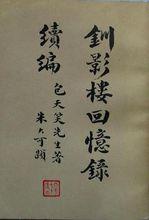 釧影樓回憶錄
續編
包天笑先生著
朱大可題